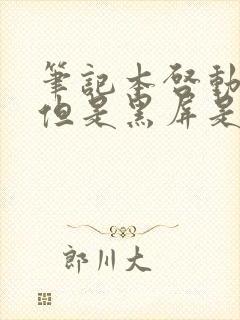 筆記本啓動
但是黑屏是
郎川大